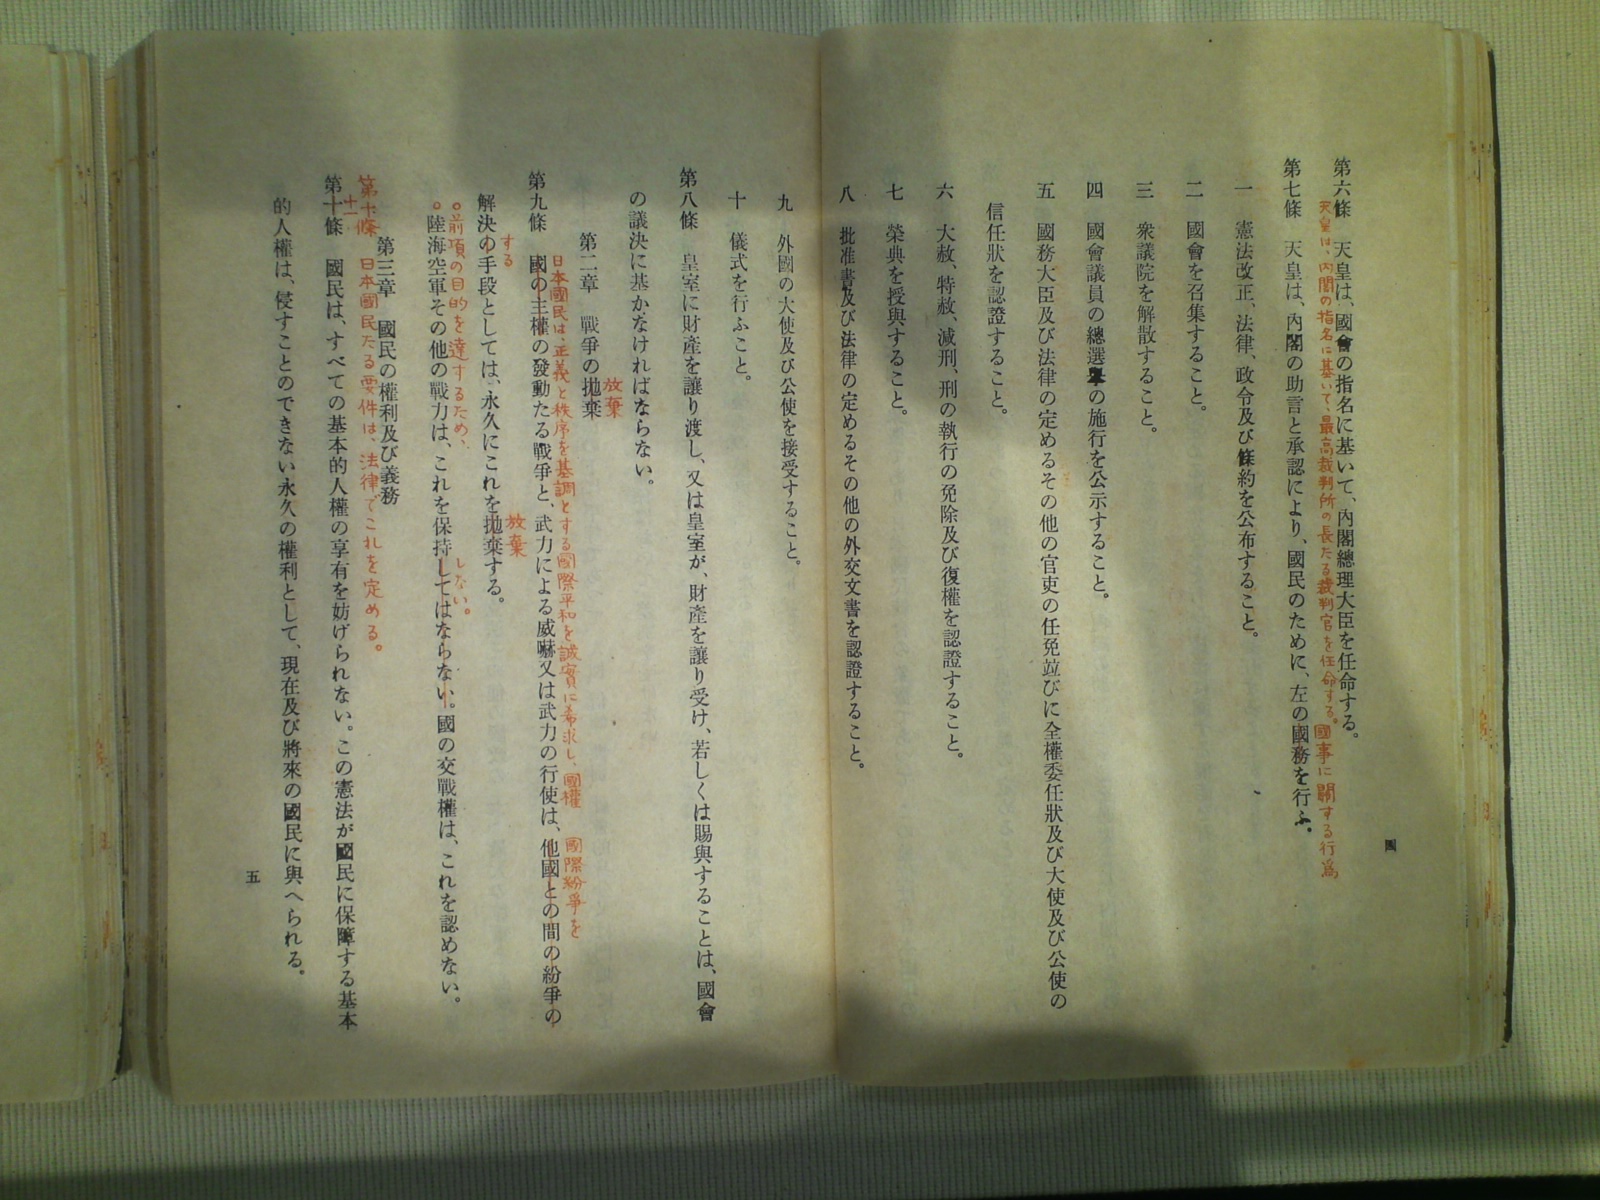 第六條　天皇は、國會の指名に基いて、內閣總理大臣を任命する。
天皇は、內閣の指名に基いて、最高裁判所の長たる裁判官を任命する。
國事に關する行爲
第七條　天皇は、內閣の助言と承認により、國民のために、左の國務を行ふ。
一　憲法改正、法律、政令及び條約を公布すること。
二　國會を召集すること。
三　衆議院を解散すること。
四　國會議員の總選擧の施行を公示すること。
五　國務大臣及び法律の定めるその他の官吏の任免竝びに全權委任狀及び大使及び公使の
信任狀を認證すること。
六　大赦、特赦、減刑、刑の執行の免除及び復權を認證すること。
七　榮典を授與すること。
八　批准書及び法律の定めるその他の外交文書を認證すること。
四
九　外國の大使及び公使を接受すること。
十　儀式を行ふこと。
第八條　皇室に財產を讓り渡し、又は皇室が、財產を讓り受け、若しくは賜與することは、國會
の議決に基かなければならない。
放棄
第二章　戰爭の抛棄
日本國民は、正義と秩序を基調とする國際平和を誠實に希求し、國權
國際紛爭を
第九條　國の主權の發動たる戰爭と、武力による威嚇又は武力の行使は、他國との間の紛爭の
する
放棄
解決の手段としては、永久にこれを抛棄する。
前項の目的を達するため、
しない。
陸海空軍その他の戰力は、これを保持してはならない。國の交戰權は、これを認めない。
第三章　國民の權利及び義務
第十條　日本國民たる要件は、法律でこれを定める。
十一
第十條　國民は、すべての基本的人權の享有を妨げられない。この憲法が國民に保障する基本
的人權は、侵すことのできない永久の權利として、現在及び將來の國民に與へられる。
五